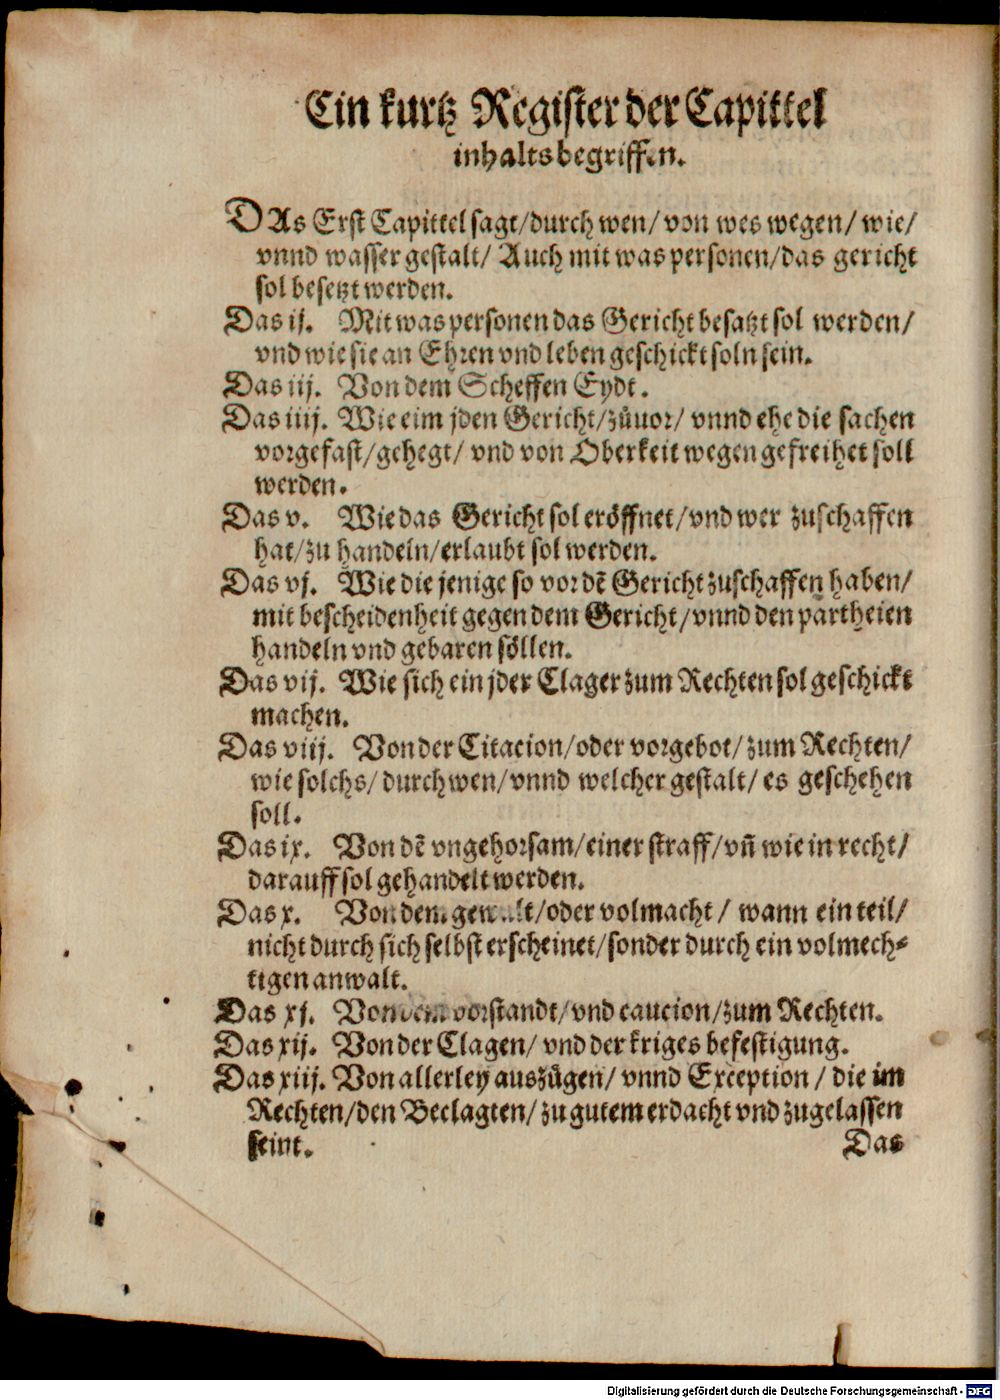 Ein kurtz Register der Capittel
inhalts begriffen.
DAs Erst Capittel sagt/durch wen/ von wes wegen/ wie/
vnnd wasser gestalt/ Auch mit was personen/das gericht
sol besetzt werden.
Das ij. Mit was personen das Gericht besatzt sol werden/
vnd wie sie an Ehren vnd leben geschickt soln sein.
Das iij. Von dem Scheffen Eydt.
Das iiij. Wie eim jden Gericht/zůuor/ vnnd ehe die sachen
vorgefast/gehegt/ vnd von Oberkeit wegen gefreihet soll
werden.
Das v. Wie das Gericht sol eröffnet/vnd wer zuschaffen
hat/zu handeln/erlaubt sol werden.
Das vj. Wie die jenige so vor dē Gericht zuschaffen haben/
mit bescheidenheit gegen dem Gericht/vnnd den partheien
handeln vnd gebaren söllen.
Das vij. Wie sich ein jder Clager zum Rechten sol geschickt
machen.
Das viij. Von der Citacion/oder vorgebot/zum Rechten/
wie solchs/ durch wen/vnnd welcher gestalt/ es geschehen
soll.
Das ix. Von dē vngehorsam/einer straff/vñ wie in recht/
darauff sol gehandelt werden.
Das x. Von dem gewalt/oder volmacht/ wann ein teil/
nicht durch sich selbst erscheinet/sonder durch ein volmech⸗
tigen anwalt.
Das xj. Von dem vorstandt/vnd caucion/zum Rechten.
Das xij. Von der Clagen/ vnd der kriges befestigung.
Das xiij. Von allerley auszůgen/ vnnd Exception/ die im
Rechten/den Beclagten/zu gutem erdacht vnd zugelassen
seint.
Das
Digitalisierung gefördert durch die Deutsche Forschungsgemeinschaft - DFG